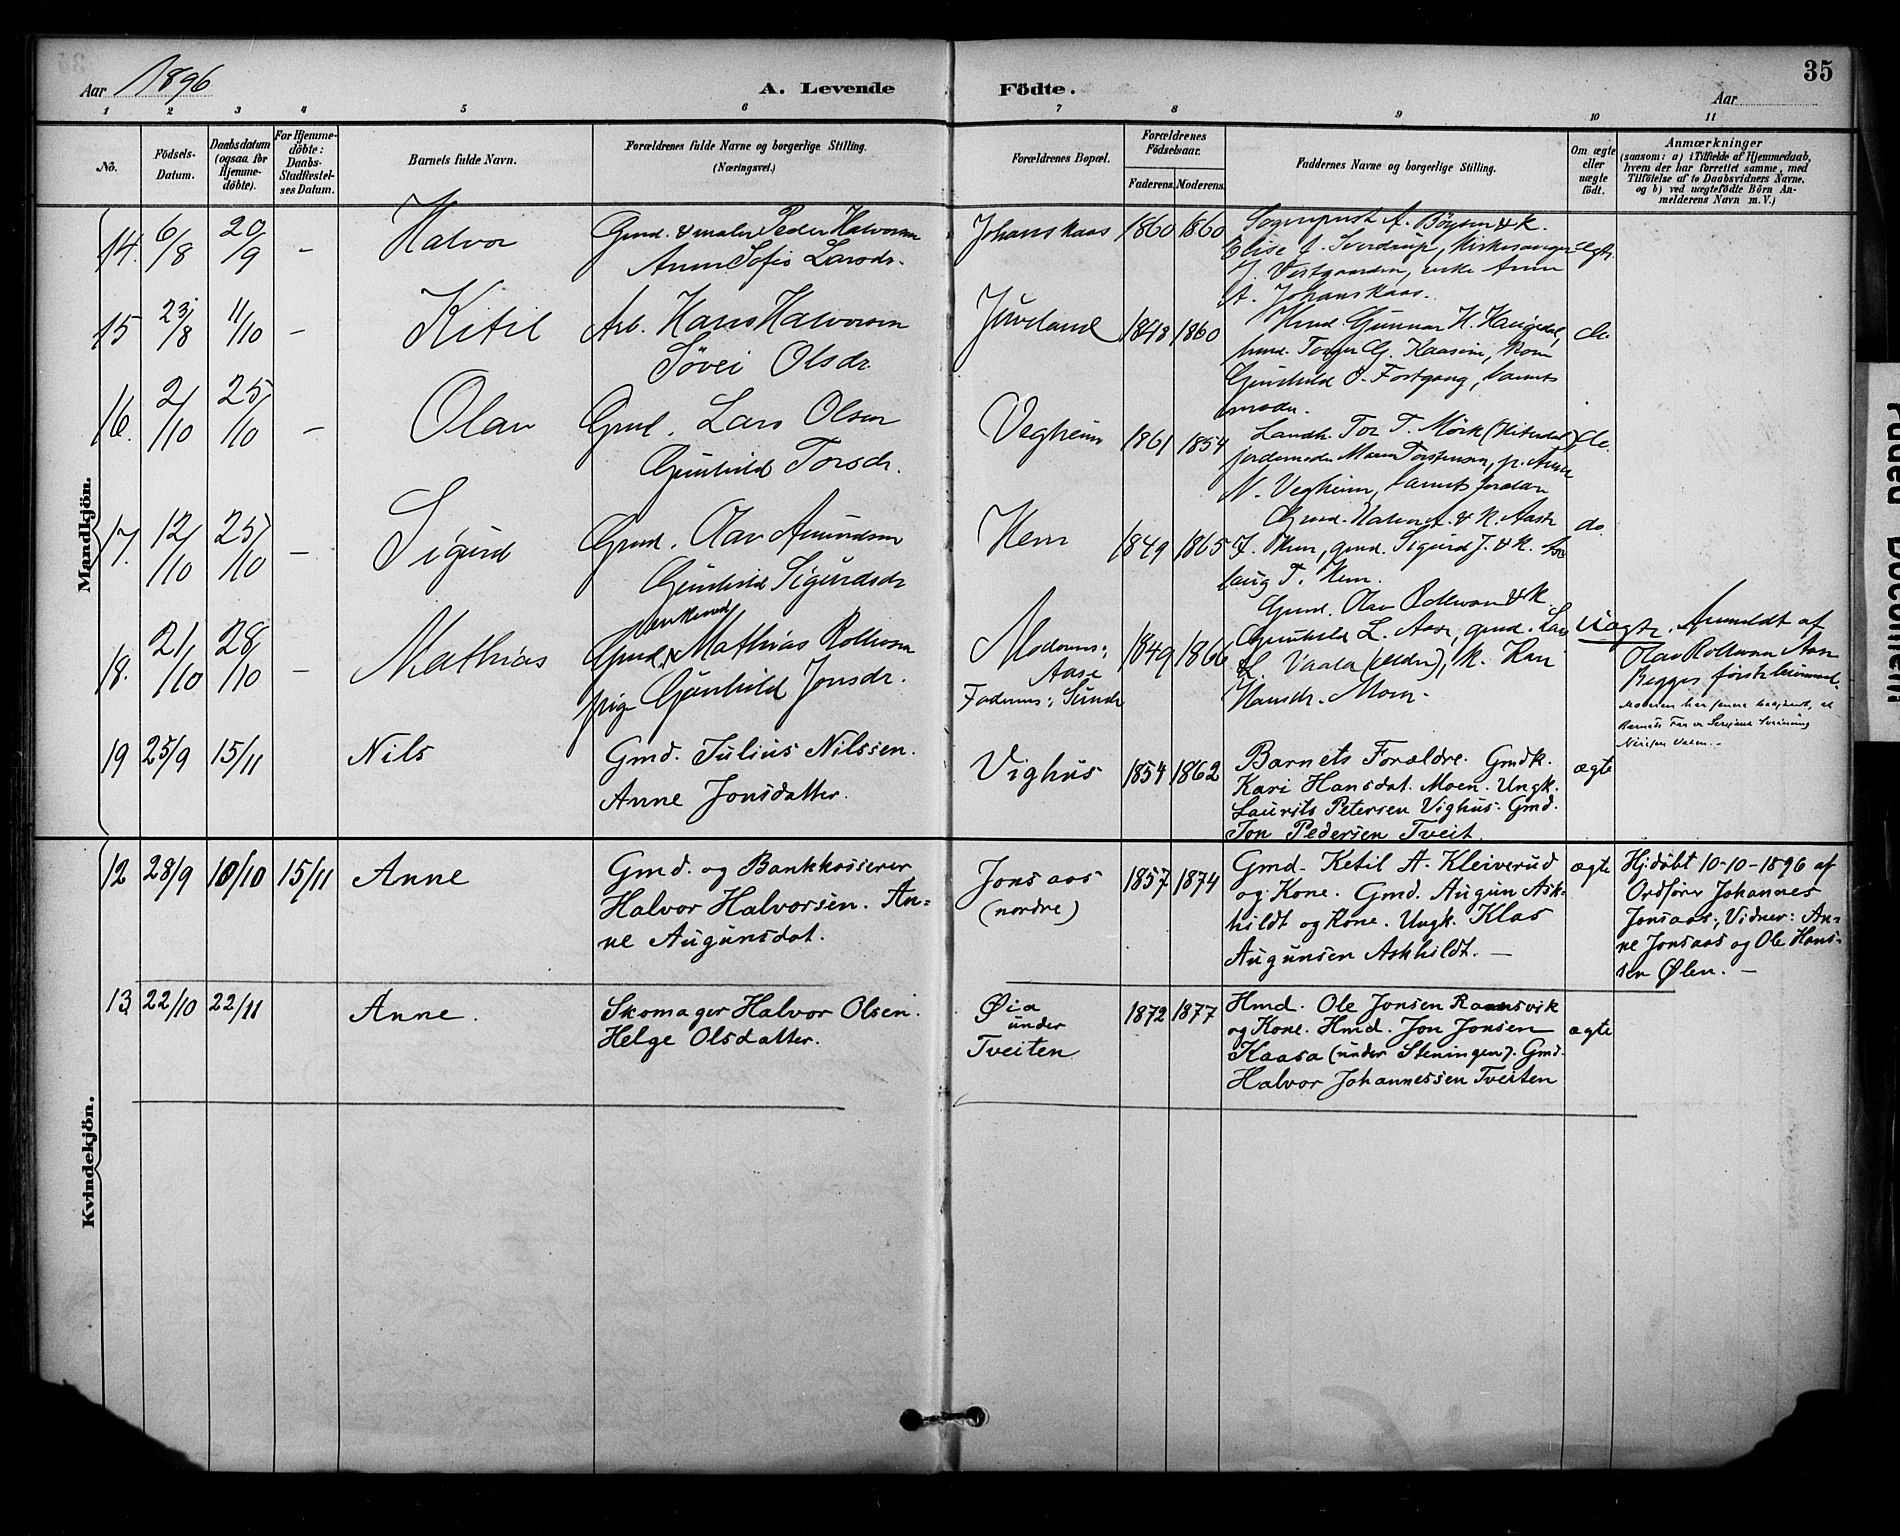 Aar 1896
A. Levende Födte.
35
Aar
1 2 3 4 5 6 7 8 9 10 11
No.
Födsels-Datum.
Daabsdatum (ogsaa for Hjemme-döbte).
For Hjemme-döbte: Daabs-Stadfæstel-ses Datum.
Barnets fulde Navn.
Forældrenes fulde Navne og borgerlige Stilling. (Næringsvei.)
Forældrenes Bopæl.
Forældrenes Födselsaar.
Faderens. Moderens.
Faddernes Navne og borgerlige Stilling.
Om ægte eller uægte födt.
Anmærkninger
(saasom: a) i Tilfælde af Hjemmedaab,
hvem der har forrettet samme, med
Tilföielse af to Daabsvidners Navne,
og b) ved uægtefödte Börn An-
melderens Navn m. V.)
Mandkjön.
14. 6/8 20/9 - Halvor
Gmd. & maler Peder Halvorsen
Anne Sofie Larsdr.
Johanskaas 1860 1860
Sogneprest A. Böysen & k.
Elise f. Sverdrup, kirkesanger
J. Vestgaarden, enke Anne
A. Johanskaas.
ægte
15 23/8 11/10 - Kitil
Arb. Hans Halvorsen
Søvei Olsdr.
Juveland 1848 1860
Gunnar H. Haugedal,
Torger G. Kaasene, kone
Gunhild O. Fostgang, barnets
moder.
do.
16. 2/10 25/10 - Olav
Gmd. Lars Olsen
Gunhild Torsdr.
Vegheim 1861 1854
Landh. Tor T. Mörk (Hiterdal)
jordemoder Maren Torstensen, p. Anne
N. Vegheim, barnets foræld­re
do.
17. 12/10 25/10 - Sigurd
Gmd. Olav Amundsen
Gunhild Sigurdsdr
Hem 1849 1865
Gmd. Halvor A. & k. Aaste
J. Hem, gmd. Sigurd J. & k. As-
laug T. Hem.
do.
18. 21/10 28/10 - Mathias
Gmd. Mathias Rollevsen
pige Gunhild Jonsdr.
Moderens: Aase
Faderens: Sunde
1849 1866
Gmd. Olav Rollevsen & k.
Gunhild L. Aase, gmd. Lars
H. Vaala (ældre), k. Kari
Hansdr. Moen.
Uægte.
Anmeldt af
Olav Rollevsen Aase
Begges første leiermaal.
Moderen har senere bekjendt, at
Barnets Far er
19 25/9 15/11 Nils
Gmd. Julius Nilssen.
Anne Jonsdatter.
Vighus 1854 1862
Barnets Forældre. Gmdk.
Kari Hansdat. Moen. Ungk.
Laurits Petersen Vighus. Gmd.
Jon Pedersen Tveit.
ægte
Kvindekjön.
12 28/9 10/10 15/11 Anne
Gmd. og Bankkasserer
Halvor Halvorsen. An=
ne Augunsdat.
Jonsaas
(nordre)
1857 1874
Gmd. Ketil A. Kleiverud
og Kone. Gmd. Augun Ask-
hildt og Kone. Ungk. Klas
Augunsen Askhildt. -
ægte
Hjdøbt 10-10-1896 af
Ordfører Johannes
Jonsaas; Vidner: An-
ne Jonsaas og Ole Hans-
sen Ølen. -
13 22/10 22/11 Anne.
Skomager Halvor Olsen.
Helge Olsdatter.
Øia
under
Tveiten
1872 1877
Hmd. Ole Jonsen Raamsvik
og Kone. Hmd. Jon Jonsen
Kaasa (under Steningen). Gmd.
Halvor Johannessen Tveiten
ægte